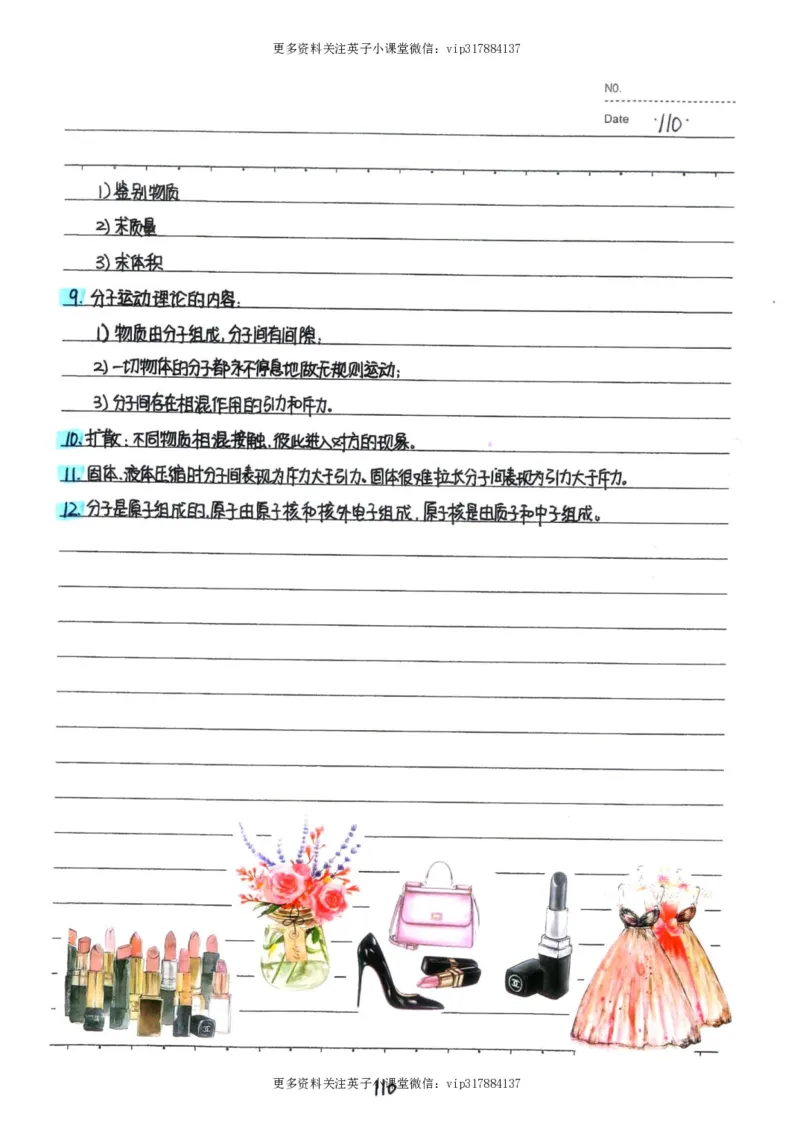 更多资料关注英子小课堂微信：vip317884137
NO.
Date ·110·
1) 鉴别物质
2) 求质量
3) 求体积
9. 分子运动理论的内容：
1) 物质由分子组成，分子间有间隙；
2) 一切物体的分子都永不停息地做无规则运动；
3) 分子间存在相混作用的引力和斥力。
10. 扩散：不同物质相混接触，彼此进入对方的现象。
11. 固体、液体压缩时分子间表现为斥力大于引力。固体很难拉长分子间表现为引力大于斥力。
12. 分子是原子组成的，原子由原子核和核外电子组成，原子核是由质子和中子组成。
更多资料关注英子小课堂微信：vip317884137
110